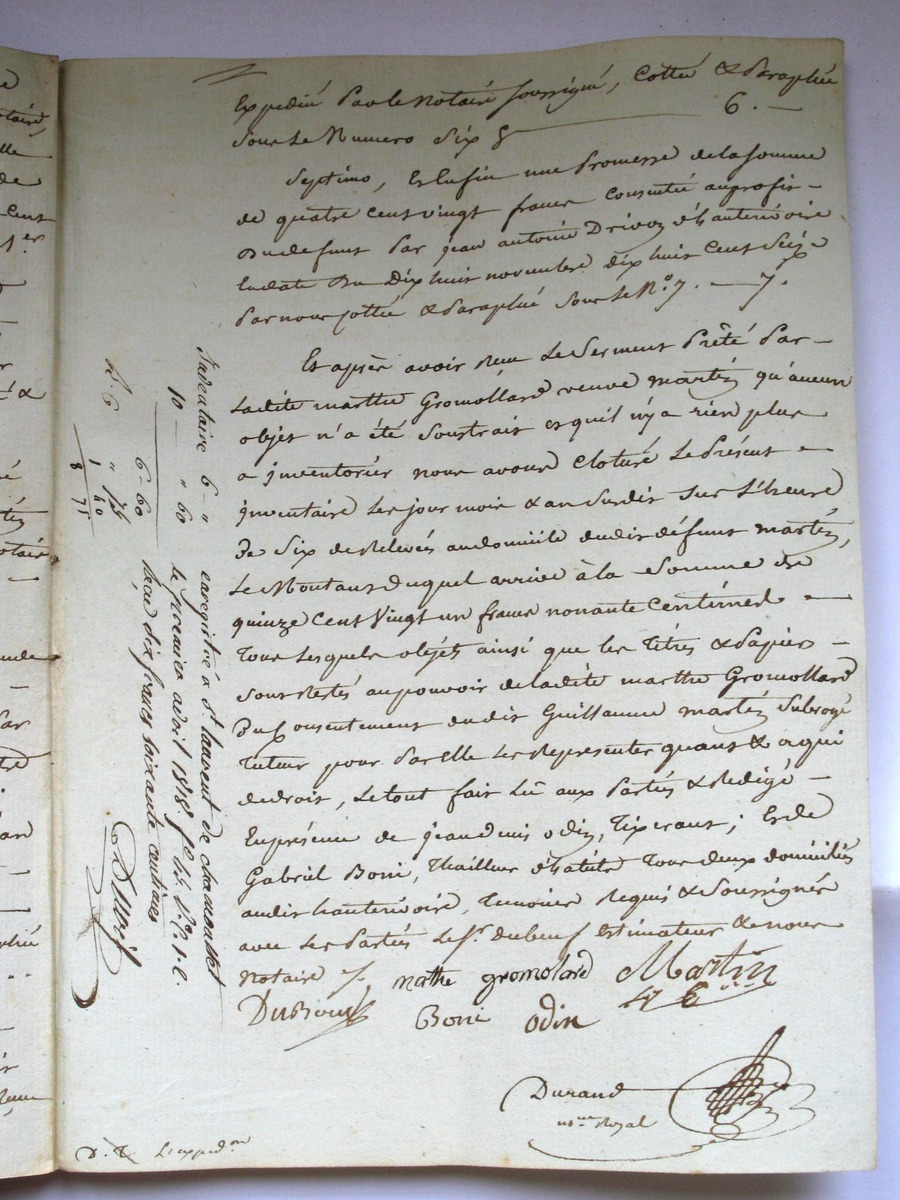 Expedié Par le Notaire soussigné, Cotté & Paraphé
sous le Numero Six 6. —
Septimo, et Enfin une Promesse de la somme
de quatre cent vingt francs Consentie au profit
du defunt Par jean antoine Drivon d'hauterivoire
En date du Dix huit novembre dix huit Cent Seize
Par nous Cottée & Paraphée Sous le N.o 7. — 7.
Et après avoir Reçu le Serment Prêté Par
Ladite marthe Gromollard veuve martin qu'aucun
objet n'a été Soustrait et qu'il n'y a rien plus
a jnventorier nous avons Cloturé le Présent
jnventaire les jour mois & an Susdit Sur l'heure
De Six de Relevée au domicile dudit défunt martin,
Le Montant Duquel arrive à la Somme de
quinze Cent Vingt un francs nonante Centimes
Tous lesquels objets ainsi que les Titres & Papiers
Sont Restés au pouvoir de ladite marthe Gromollard
Du Consentement dudit Guillaume martin Subrogé
Tuteur pour Par elle les Representer quand & a qui
de droit, le tout fait Lû aux Parties & Redigé
En présence de jean denis odin, Tixerant, Et de
Gabriel Boni, Thailleur d'habits Tous deux domiciliés
audit hauterivoire, Temoins Requis & Soussignés
avec les Parties le Sr. dubeuf Estimateur & nous
Notaire
mathe gromolard Martin
Dubeuf Boni odin
Durand
nre Royal
Inventaire 6 – "
10 — " 60
6 – 60
enregistré à St. laurent de chamousset
le premier avril 1818. f.
Reçu dix francs soixante centimes
D. 6
1 40
8 75
D. R. L'exped.on